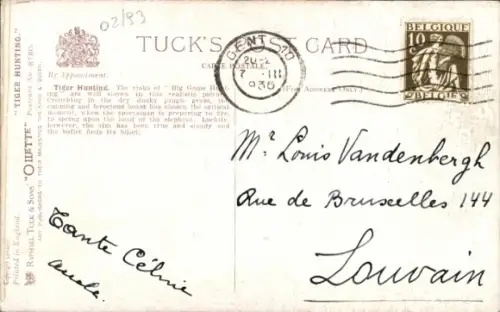 02/93
TUCK'S POST CARD
CARTE POSTALE
By Appointment.
(FOR ADDRESS ONLY.)
Tiger Hunting. The risks of "Big Game Hunting" are well shown in this realistic picture.
Crouching in the dry dusky jungle grass, the
cunning and ferocious beast has chosen the critical
moment, when the sportsman is preparing to fire,
to spring upon the head of the elephant. Luckily,
however, the aim has been true and steady and
the bullet finds its billet.
"TIGER HUNTING."
RAPHAEL TUCK & SONS' "OILETTE"
Printed in England.
GENT 10
7 III
1935
BELGIQUE
10
BELGIË
Mr Louis Vandenbergh
Rue de Bruxelles 144
Louvain
Tante Céline